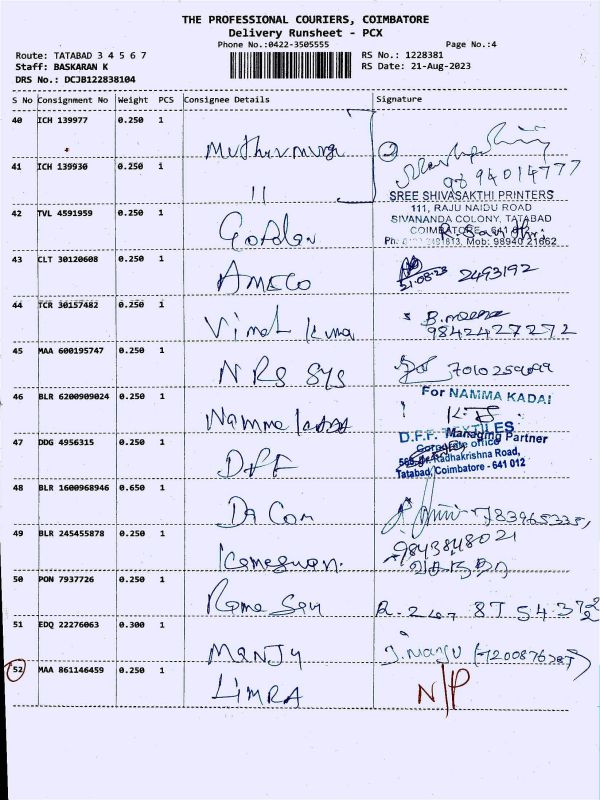 THE PROFESSIONAL COURIERS, COIMBATORE
Delivery Runsheet - PCX
Phone No.:0422-3505555
Page No.:4
Route: TATABAD 3 4 5 6 7
RS No.: 1228381
Staff: BASKARAN K
RS Date: 21-Aug-2023
DRS No.: DCJB122838104
S No Consignment No Weight PCS Consignee Details Signature
40 ICH 139977 0.250 1
Muthumurga
41 ICH 139930 0.250 1
11
9894014777
SREE SHIVASAKTHI PRINTERS
111, RAJU NAIDU ROAD
SIVANANDA COLONY, TATABAD
42 TVL 4591959 0.250 1
Golden
Mob: 98940 21662
43 CLT 30120608 0.250 1
AMECO
21.08.23 2493192
44 TCR 30157482 0.250 1
Vimal Kuma
9842427272
45 MAA 600195747 0.250 1
NRS SYS
46 BLR 6200909024 0.250 1
Namma kadai
For NAMMA KADAI
Managing Partner
47 DDG 4956315 0.250 1
DFF
D.F.F. TEXTILES
Corporate office
Radhakrishna Road,
Tatabad, Coimbatore - 641 012
48 BLR 1600968946 0.650 1
Da Com
49 BLR 245455878 0.250 1
Kameswan.
9843848021
50 PON 7937726 0.250 1
51 EDQ 22276063 0.300 1
MANJU
52 MAA 861146459 0.250 1
LIMRA
N/P